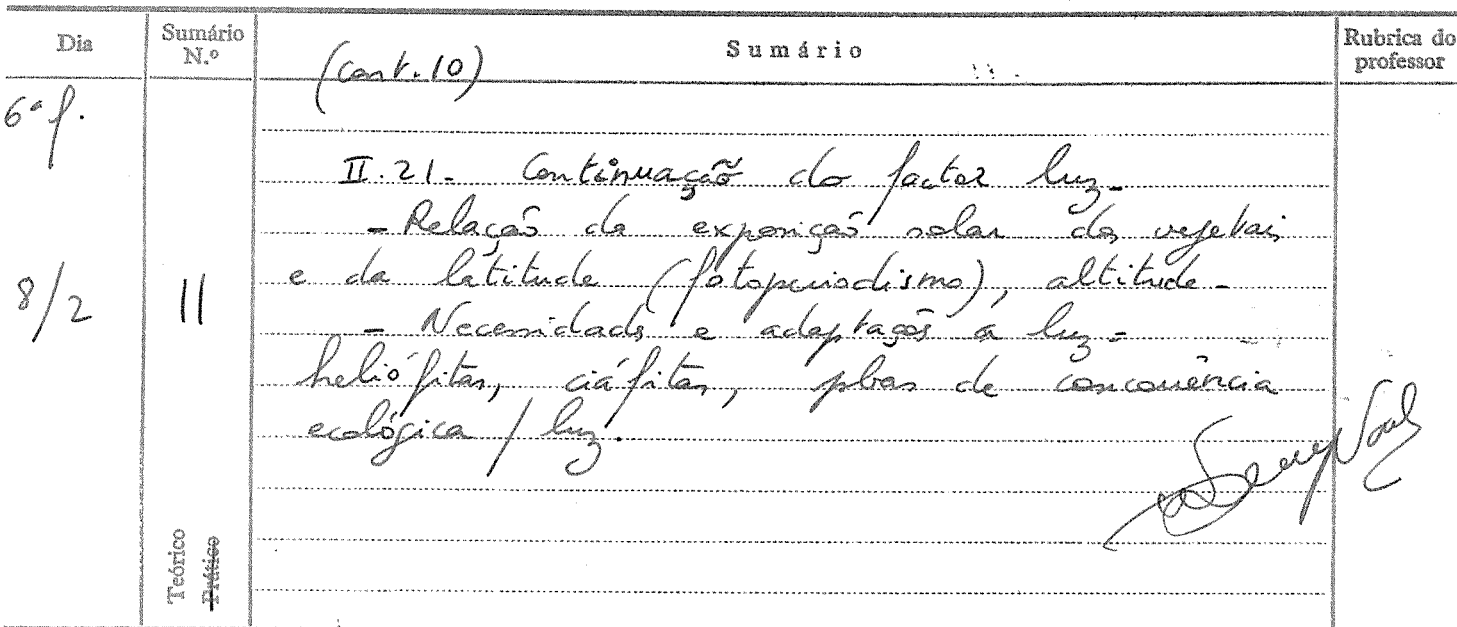 Dia
Sumário N.º
Sumário
Rubrica do professor
(Cont. 10)
6ª f.
II.21- Continuação do factor luz-
- Relação da exposição solar dos vegetais
e da latitude (fotoperiodismo), altitude-
8/2
11
- Necessidades e adaptações à luz-
heliófitas, ciáfitas, de concorrência
ecológica / luz.
Teórico
Prático